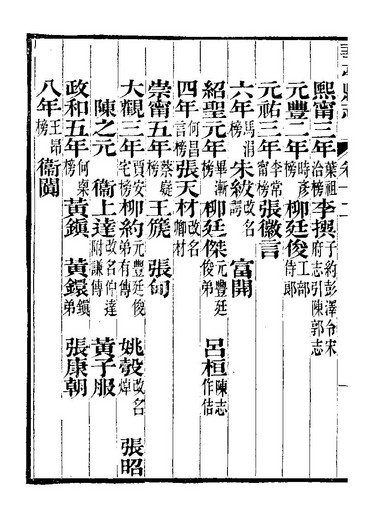 熙甯三年葉祖洽榜李撰子約彭澤令宋府志引陳郭志
元豐二年時彥榜柳廷俊工部侍郎
元祐三年李常甯榜張徽言
六年馬涓榜朱紱改名諤 富開
紹聖元年畢漸榜柳廷傑元豐廷俊弟 呂桓陳志作佶
四年何昌言榜張天材改名卿材
崇甯五年蔡嶷榜王篪 張甸
大觀三年賈安宅榜柳約元豐廷俊弟有傳 姚瑴改名焯 張昭
陳之元 衞上達改名仲達附謙傳 黃子服
政和五年何㮚榜黃鎮 黃鐶鎮弟 張康朝
八年王昂榜衞闐